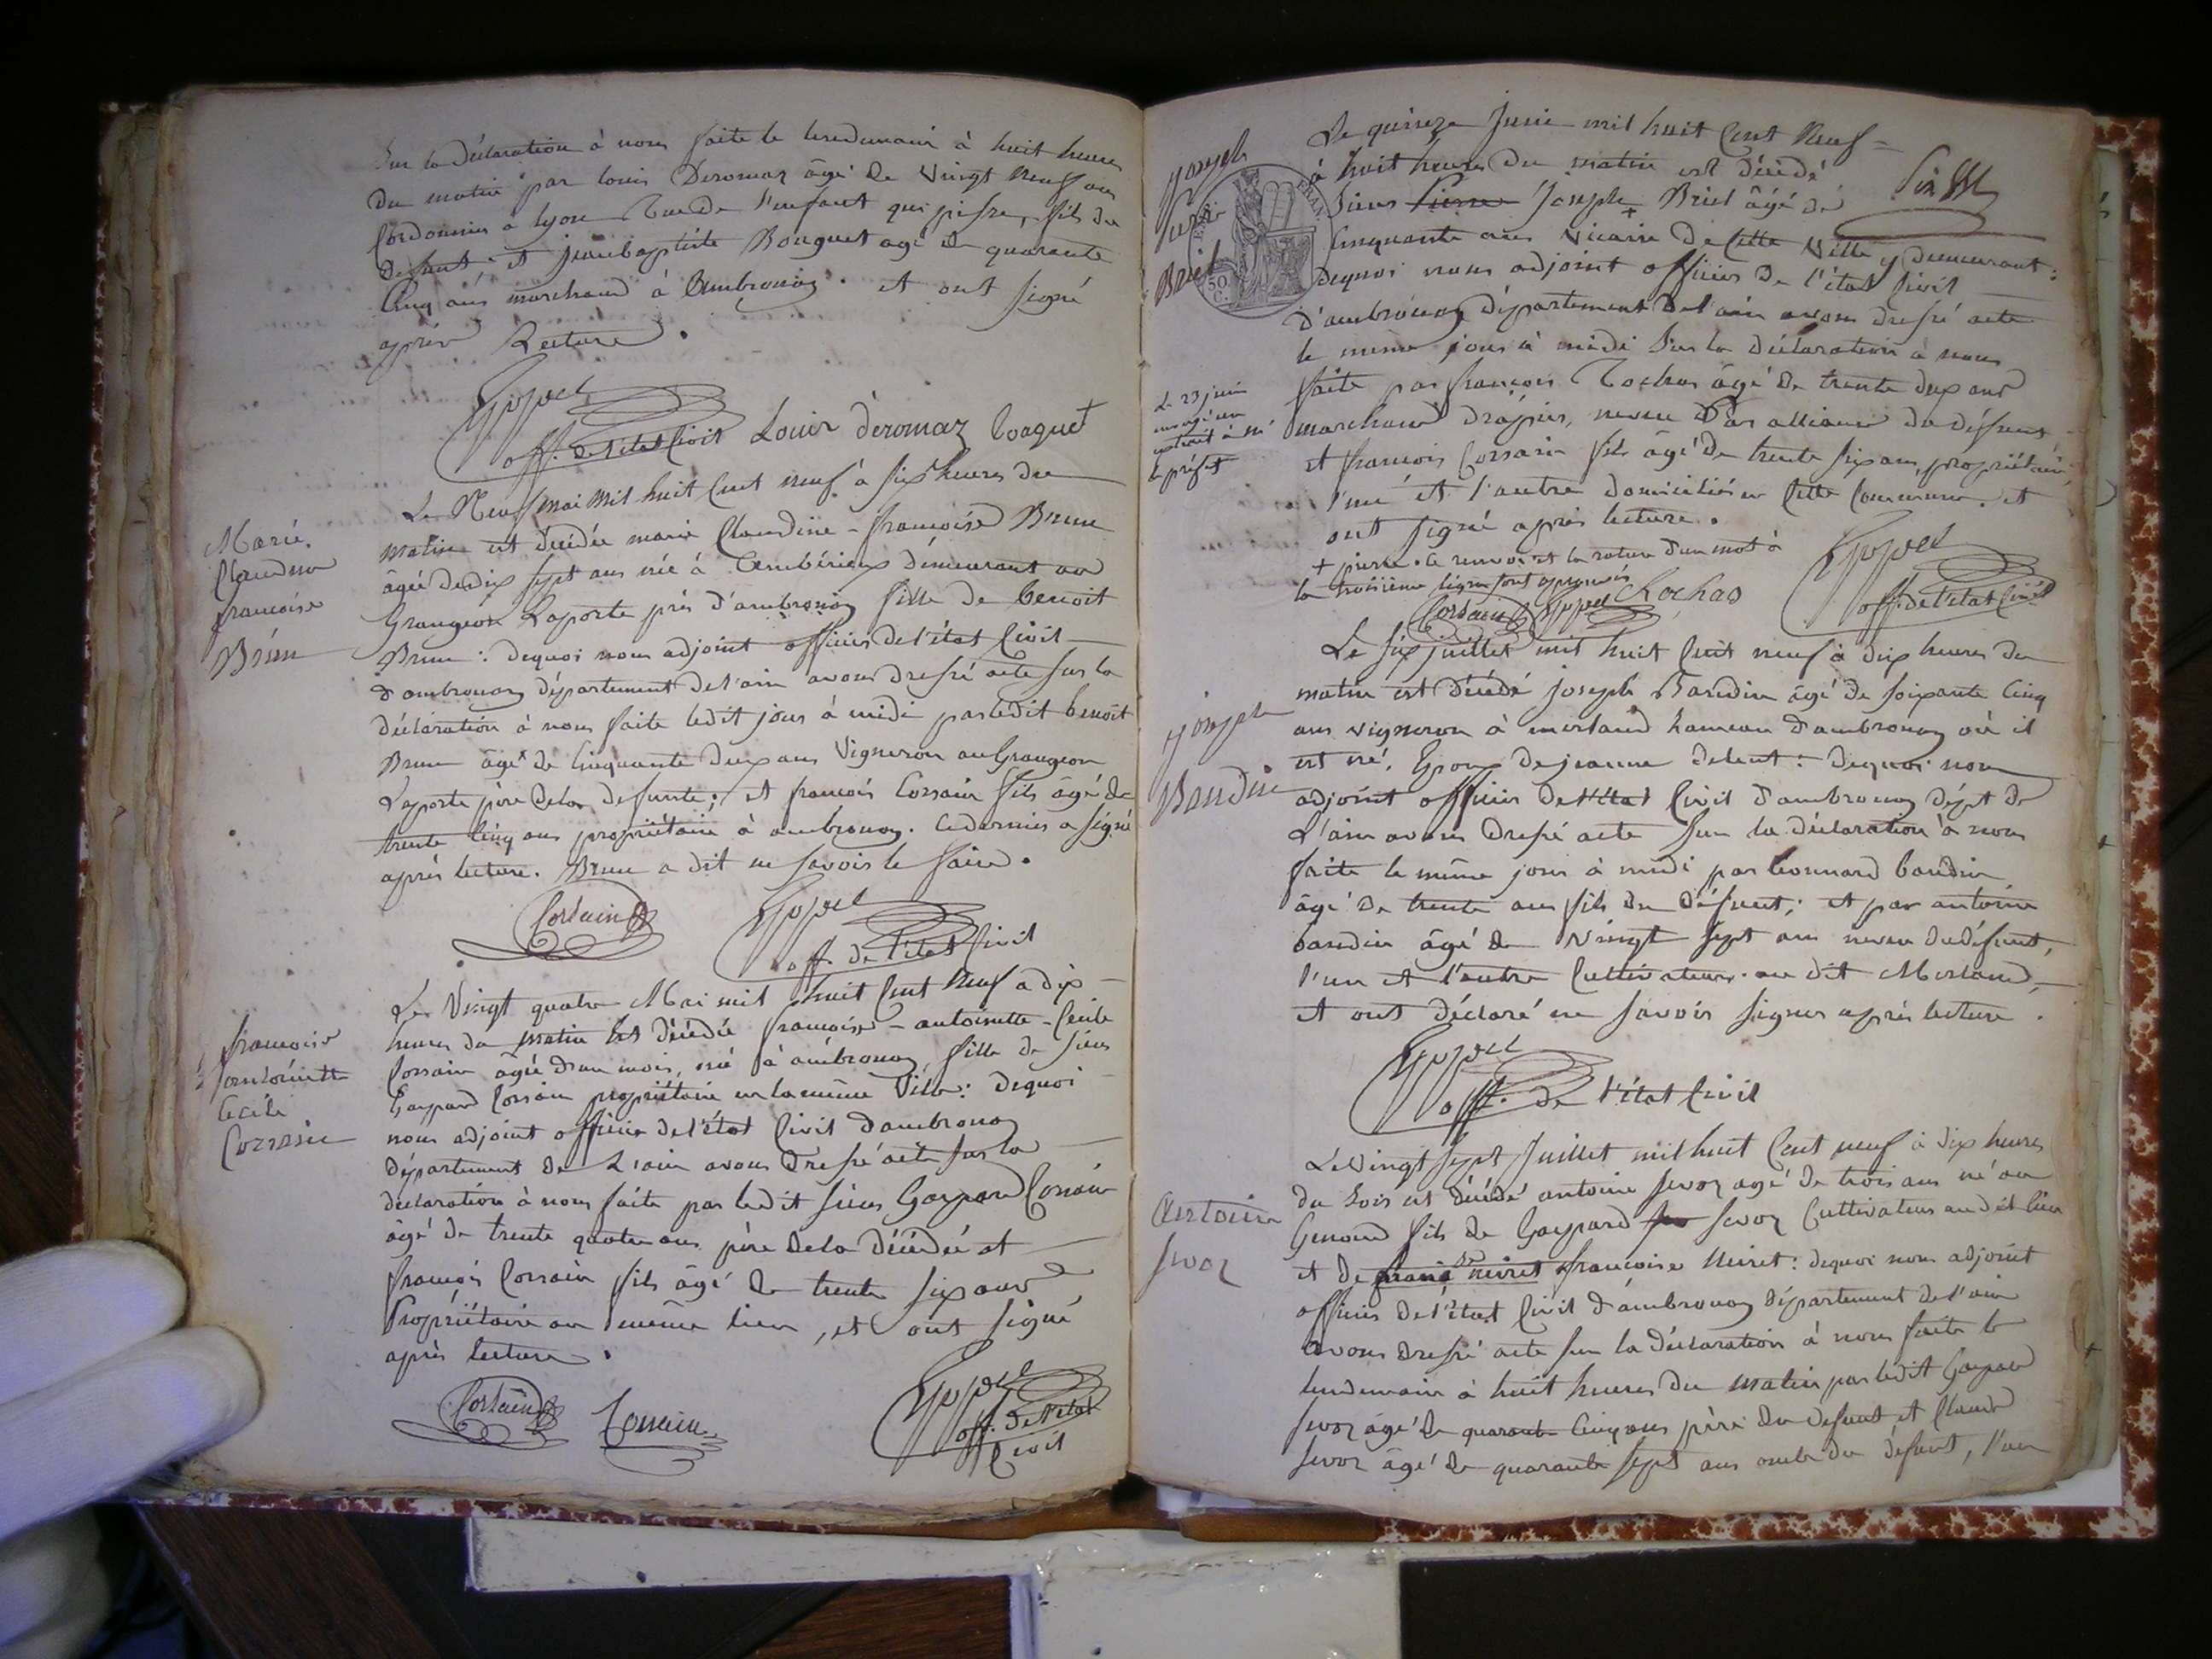 Sur la Déclaration à nous faite le lendemain à huit heures
du matin par louis Deromaz âgé de Vingt neuf ans
Cordonnier à lyon Rue de l'enfant qui pisse, fils du
defunt et jeanbaptiste Bouquet agé de quarante
Cinq ans marchand à Ambronay. et ont signé
après Lecture.
off. de l'état Civil Louis deromaz
Marie
Claudine
françoise
Brun
Le Neuf mai mil huit Cent neuf à six heures du
matin est décédée marie Claudine - françoise Brun
âgée de dix sept ans née à demeurant au
Grangeon Laporte près d'ambronay fille de benoit
Brun : dequoi nous adjoint officier de l'état Civil
d'ambronay département de l'ain avons dressé acte sur la
déclaration à nous faite ledit jour à midi par ledit benoit
Brun âgé de Cinquante deux ans Vigneron au Grangeon
Laporte père de la defunte; et françois Corsain fils âgé de
trente Cinq ans propriétaire à ambronay. Ce dernier a signé
après lecture. Brun a dit ne savoir le faire.
Corsain
off. de l'état Civil
françoise
antoinette
Cécile
Corsain
Le Vingt quatre Mai mil huit Cent Neuf a dix
heures du matin Est décédée françoise - antoinette - Cecile
Corsain âgée d'un mois, née à ambronay, fille de sieur
Gaspard Corsain propriétaire en la même Ville : dequoi
nous adjoint officier de l'état Civil d'ambronay
département de L'ain avons dressé acte sur la
déclaration à nous faite par ledit sieur Gaspard Corsain
âgé de trente quatre ans père de la Décédée et
françois Corsain fils âgé de trente six ans
Propriétaire au même lieu, et ont signé
après lecture.
Corsain Corsain
off. de l'état
Civil
joseph
Pierre
Briel
Le quinze Juin mil huit Cent Neuf
à huit heures du matin est décédé
Sieur Pierre Joseph + Briel âgé de
Cinquante ans Vicaire de Cette Ville y demeurant :
dequoi nous adjoint officier de l'état Civil
d'ambronay département de l'ain avons dressé acte
le même jour à midi sur la déclaration à nous
faite par françois Rochas âgé de trente deux ans
marchand drapier, neveu Par alliance du défunt
et francois Corsain fils âgé de trente six ans, propriétaire,
l'un et l'autre domiciliés en Cette Commune. et
ont signé après lecture.
+ pierre. le renvoi et la rature d'un mot à
la troisième ligne sont approuvés
Le 23 juin
envoyé un
extrait à Mr
le préfet
Corsain Rochas
off. de l'état Civil
joseph
Baudin
Le six juillet mil huit Cent neuf à dix heures du
matin est décédé joseph Baudin âgé de soixante Cinq
ans vigneron à merland hameau d'ambronay où il
est né, Epoux de jeanne : dequoi nous
adjoint officier de l'état Civil d'ambronay dépt de
L'ain avons dressé acte sur la déclaration à nous
faite le même jour à midi par leonnard baudin
âgé de trente ans fils du défunt; et par antoine
baudin âgé de Vingt sept ans neveu du défunt,
l'un et l'autre Cultivateurs au dit Merland,
et ont déclaré ne savoir signer après lecture.
off. de l'état Civil
Antoine
Le Vingt sept Juillet mil huit Cent neuf à dix heures
du soir est décédé antoine agé de trois ans né au
Genoud fils de Gaspard Cultivateur au dit lieu
et de françoise Miret : dequoi nous adjoint
officier de l'état Civil d'ambronay département de l'ain
avons dressé acte sur la déclaration à nous faite le
lendemain à huit heures du matin par ledit Gaspard
âgé de quarante Cinq ans père du defunt et Claude
âgé de quarante sept ans oncle du défunt, l'un